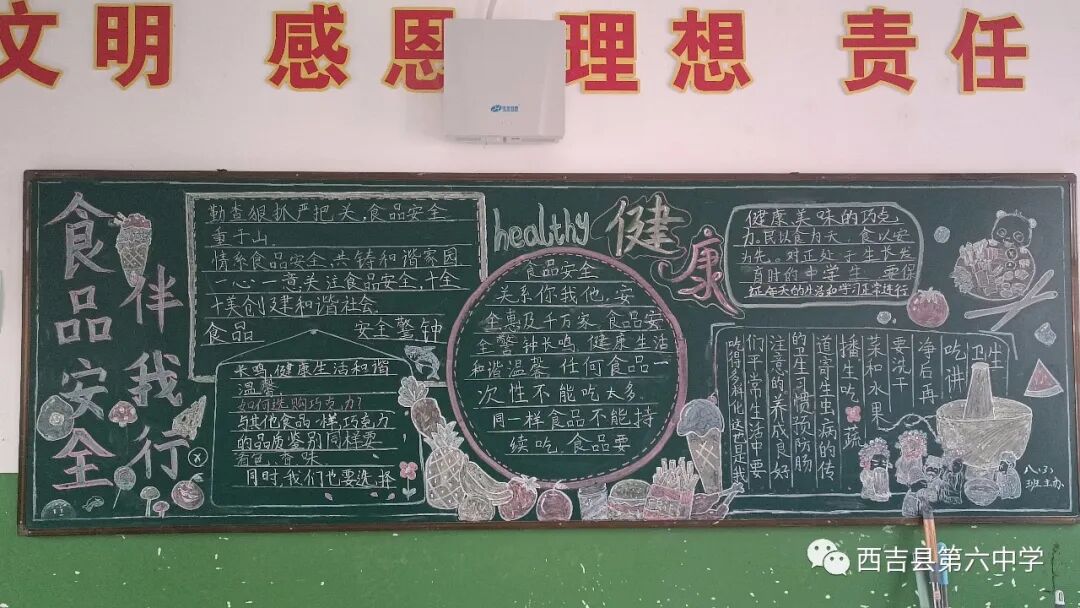 文明 感恩 理想 责任
食品安全
伴我行
勤查狠抓严把关,食品安全
重于山.
情系食品安全,共铸和谐家园
一心一意关注食品安全,十全
十美创建和谐社会
食品 安全警钟
长鸣,健康生活和谐
温馨
如何选购巧克力?
与其他食品一样,巧克力
的品质鉴别同样要
看色、香、味
同时,我们也要选择
healthy 健康
食品安全
关系你我他,安
全惠及千万家.食品安
全警钟长鸣,健康生活
和谐温馨.任何食品一
次性不能吃太多.
同一样食品不能持
续吃.食品要
健康美味的巧克
力.民以食为天,食以安
为先。对正处于生长发
育时的中学生,要保
证每天的生活和学习正常进行
卫生
吃讲
净后再
要洗干
菜和水果
播生吃蔬
道寄生虫病的传
的卫生习惯预防肠
注意的养成良好
们平常生活中要
吃得多样化这也是我
八(3)
班主办
西吉县第六中学